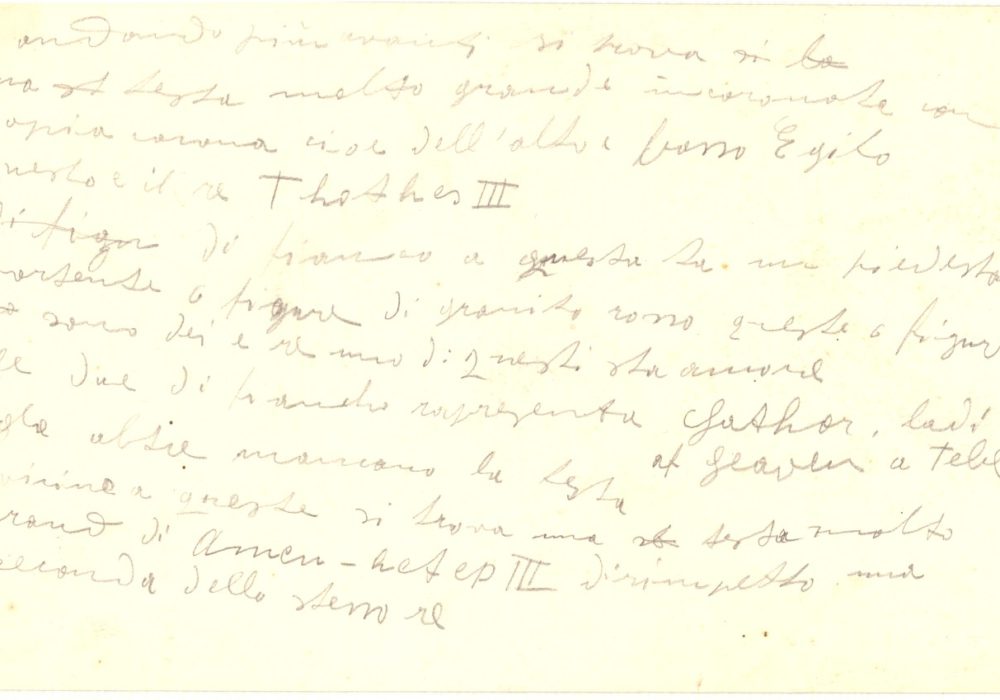 andando più avanti si trova si la
na st testa molto grande incoronata con
opia corona cioe dell'alto e basso Egito
uesto e il re Thothes III
di figur di fianco a questa sta un piedesta
ortente 6 figure di granito rosso queste 6 figur
sono dei e re uno di questi sta amore
le due di fiancho rapresenta Hathor, ladi
gle altre mancano la testa of Heaven a Tebe
vicine a queste si trova una st testa molto
rand di Amen-hetep III dirimpetto una
econda dello stesso re